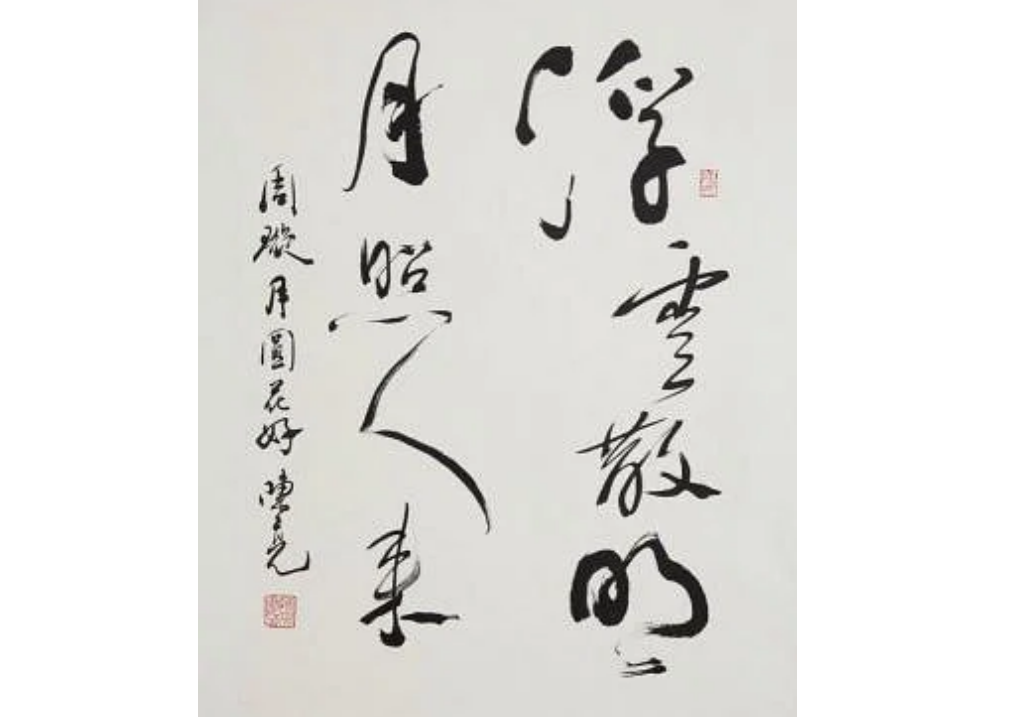 浮雲散明々
月照人來
周璇月圓花好 陳